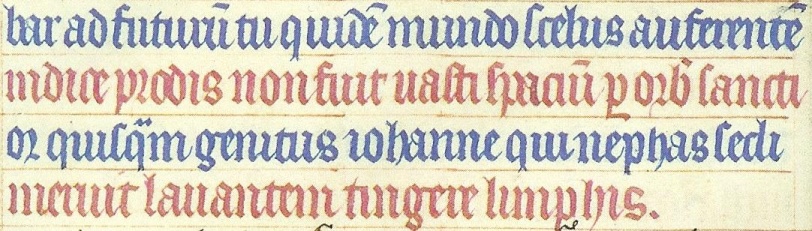 bar ad futurū tu quidē mundo scelus auferentē
indice prodis non fuit uasti spaciū p orbē sancti
or quisq̄m genitus iohanne qui nephas secli
meruit lauantem tingere limphis.